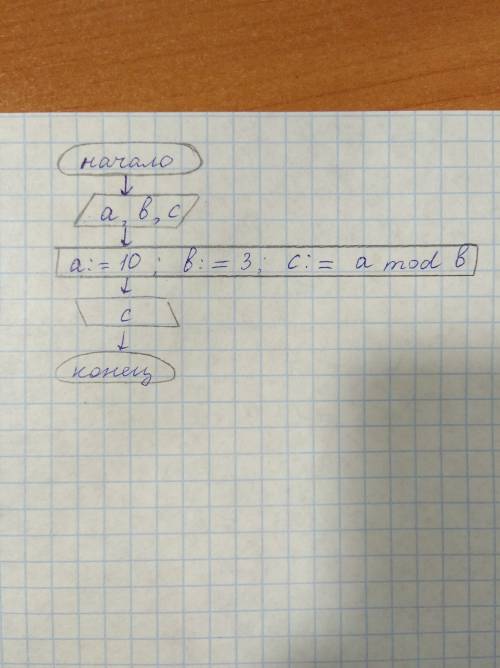 начало
a, b, c
a:=10; b:=3; c:= a mod b
c
конец